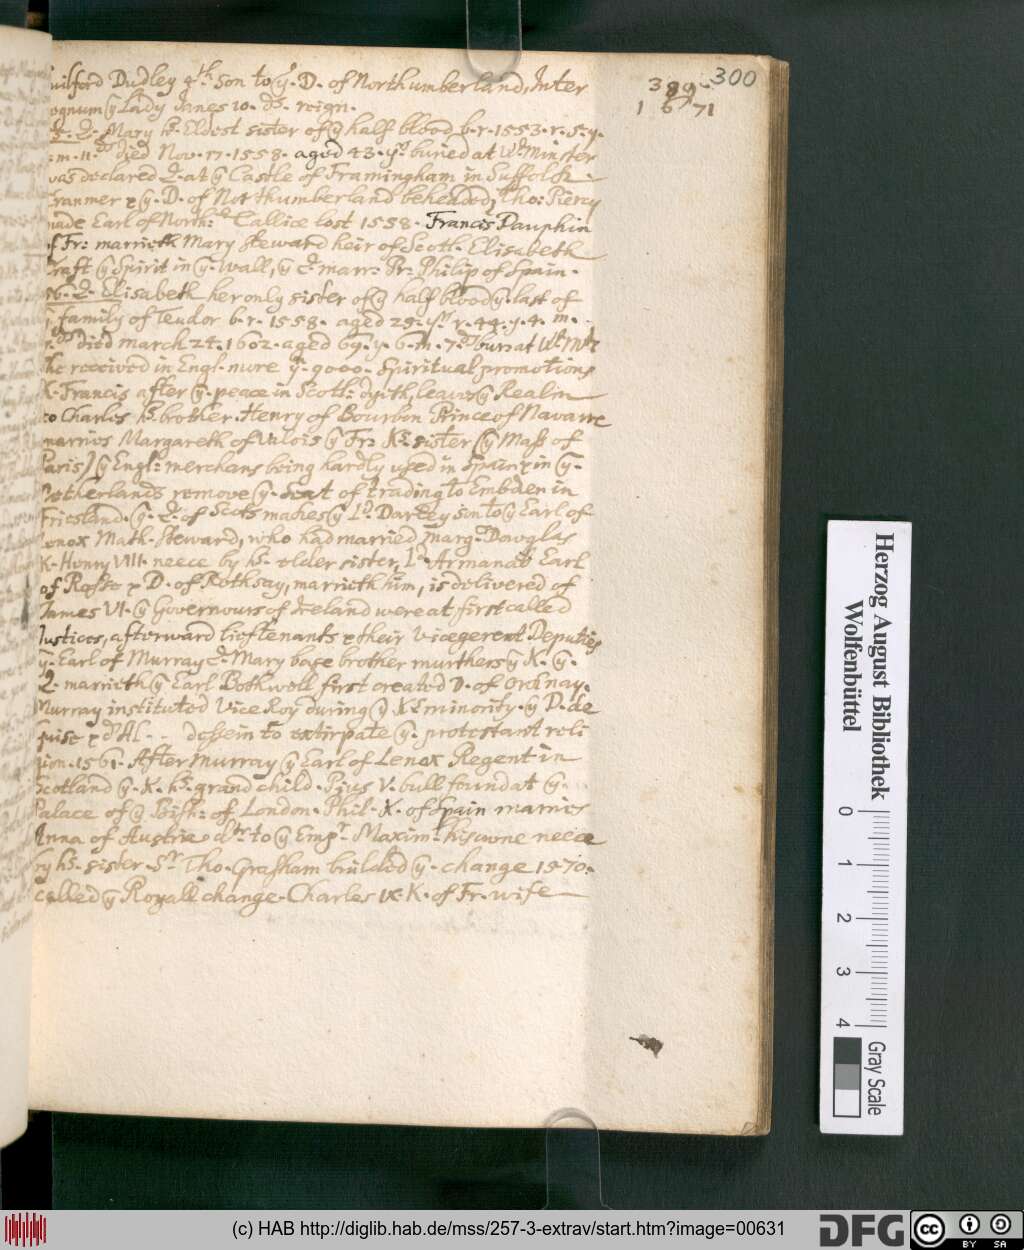 389
300
1671
uilford Dudley 4th son to ye D. of Northumberland, Inter
regnum ye Lady Janes 10. ds. reign.
5. Q. Mary hr. Eldest sister of ye half blood b. r. 1553. r. 5. y.
m. 11. ds died Nov. 17. 1558. aged 43. ys buried at Wtminster
was declared Q. at ye Castle of Framingham in Suffolck.
Cranmer & ye D. of Northumberland beheaded, Tho: Piercy
made Earl of North: d Callice lost 1558. Francis Dauphin
of Fr: marrieth Mary steward heir of Scotl. Elisabeth
Craft ye Spirit in ye Wall, ye Q. marr: Pr: Philip of Spain.
6. Q. Elisabeth her only sister of ye half blood ye last of
ye family of Teudor b. r. 1558. aged 25. ys r. 44. y. 4. m.
ds died march 24. 1602. aged 69. y. 6. m. 7. ds buri at Wt Mstr
she received in Engl. mure ye 9000. Spiritual promotions
K. Francis after ye peace in Scotl: dyeth, leaves ye Realm
to Charles hs. brother. Henry of Bourbon Prince of Navarre
marries Margareth of Valois ye Fr: Ks. sister (ye Mass of
Paris) ye Engl: merchans being hardly used in Spain & in ye
Netherlands remove ye Seat of trading to Embden in
Friesland. ye Q. of Scots makes ye Ld. Darley son to ye Earl of
Lenox Math. steward, who had married marg: Dowglas
K. Henry VIII. neece by hs. elder sister, Ld. Armanac Earl
of Rosse & D. of Rothsay, marrieth him, is delivered of
James VI. ye Governours of Ireland were at first called
Justices, afterward lieftenants & their vicegerent Deputies
ye Earl of Murray Q. Mary base brother murthers ye K. ye
Q. marrieth ye Earl Bothwell first created D. of Orknay.
Murray instituted Vice Roy during ye Ks minority. ye D. de
Guise & d'Al - - dessein to extirpate ye protestant reli
gion. 1561. After Murray ye Earl of Lenox Regent in
Scotland ye K. hs. grand child. Pius V. bull found at ye
Palace of ye Bish: of London. Phil. K. of Spain marries
Anna of Austrie dtr. to ye Empr. Maxim: his owne neece
by hs. sister. Sr. Tho. Grasham builded ye change 1570.
called ye Royall change. Charles IX. K. of Fr. wife
Herzog August Bibliothek
Wolfenbüttel
0 1 2 3 4
Gray Scale
(c) HAB http://diglib.hab.de/mss/257-3-extrav/start.htm?image=00631
DFG
cc
BY SA